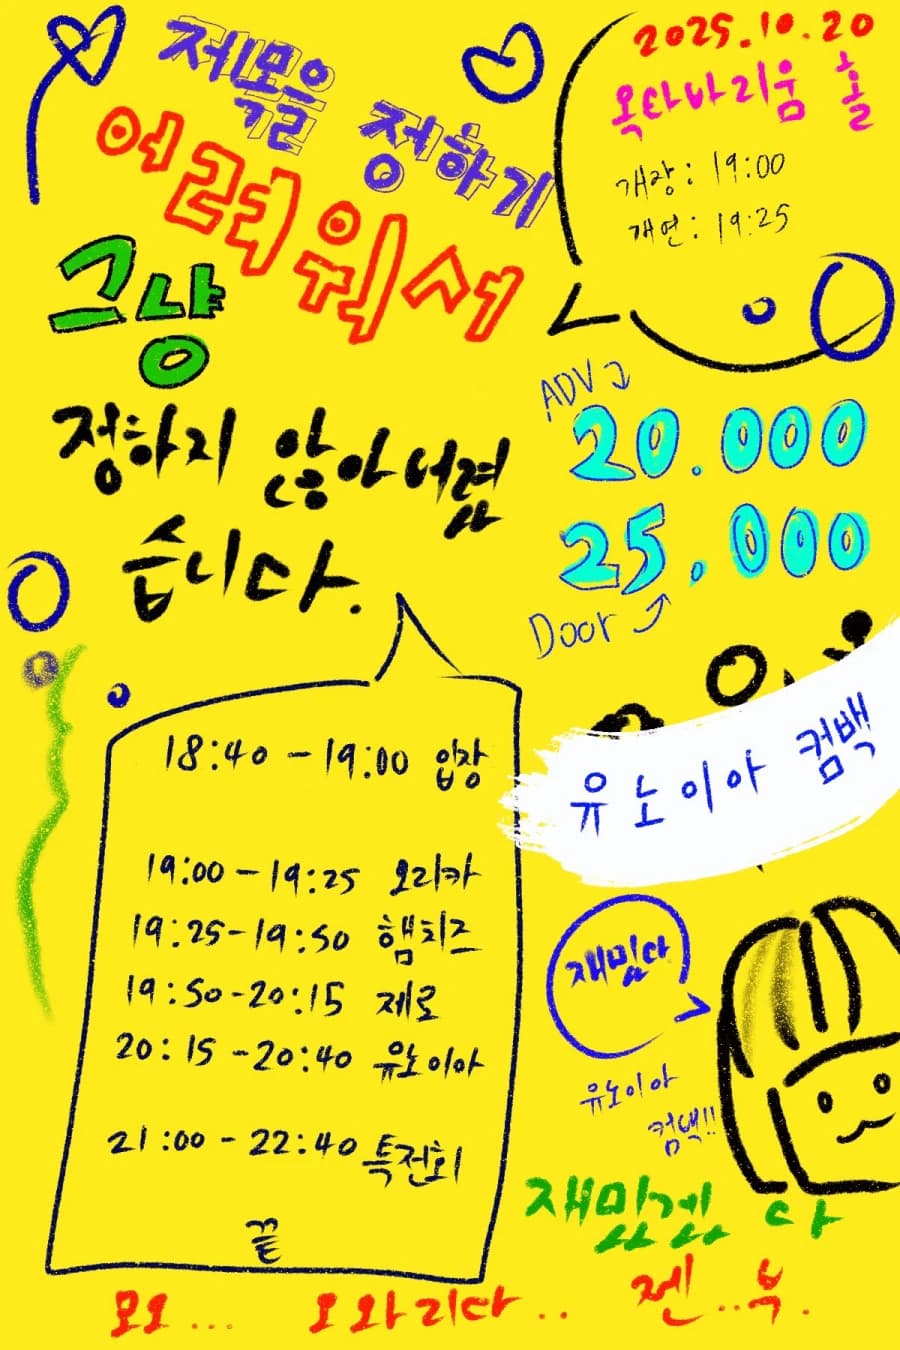 제목을 정하기
어려워서
그냥
정하지 않아버렸
습니다.
2025.10.20
옥타바리움 홀
개장: 19:00
개연: 19:25
ADV
20.000
25.000
Door
유노이아 컴백
18:40 - 19:00 입장
19:00 - 19:25 오리카
19:25 - 19:50 햄치즈
19:50 - 20:15 제로
20:15 - 20:40 유노이아
21:00 - 22:40 특전회
끝
재밌다
유노이아
컴백!!
재밌겠다
모오... 오와리다.. 젠..부.